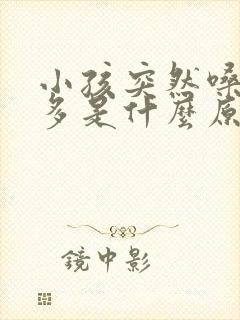 小孩突然嗓
多是什麼原
鏡中影